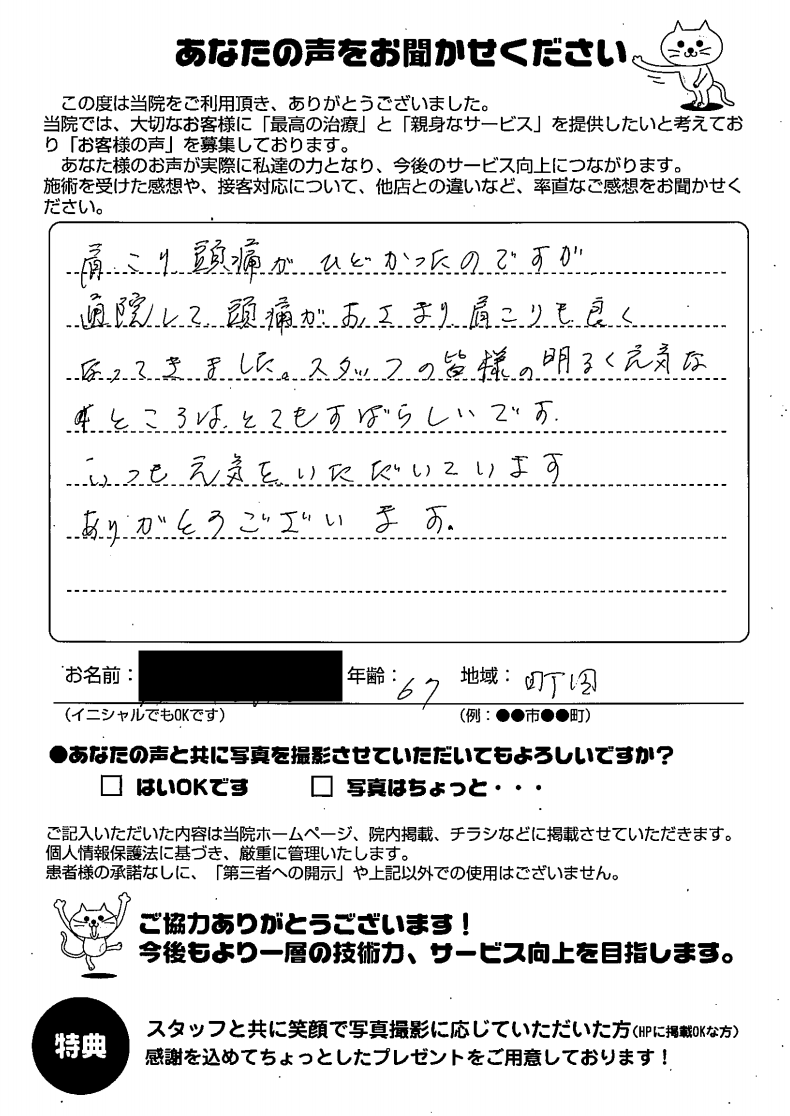 あなたの声をお聞かせください
この度は当院をご利用頂き、ありがとうございました。
当院では、大切なお客様に「最高の治療」と「親身なサービス」を提供したいと考えてお
り「お客様の声」を募集しております。
あなた様のお声が実際に私達の力となり、今後のサービス向上につながります。
施術を受けた感想や、接客対応について、他店との違いなど、率直なご感想をお聞かせく
ださい。
肩こり頭痛がひどかったのですが
通院して頭痛がおさまり肩こりも良く
なってきました。スタッフの皆様の明るく元気な
ところはとてもすばらしいです.
いつも元気をいただいています
ありがとうございます.
お名前： 年齢：67 地域：町田
（イニシャルでもOKです） （例：●●市●●町）
●あなたの声と共に写真を撮影させていただいてもよろしいですか？
□ はいOKです □ 写真はちょっと・・・
ご記入いただいた内容は当院ホームページ、院内掲載、チラシなどに掲載させていただきます。
個人情報保護法に基づき、厳重に管理いたします。
患者様の承諾なしに、「第三者への開示」や上記以外での使用はございません。
ご協力ありがとうございます！
今後もより一層の技術力、サービス向上を目指します。
特典
スタッフと共に笑顔で写真撮影に応じていただいた方（HPに掲載OKな方）
感謝を込めてちょっとしたプレゼントをご用意しております！